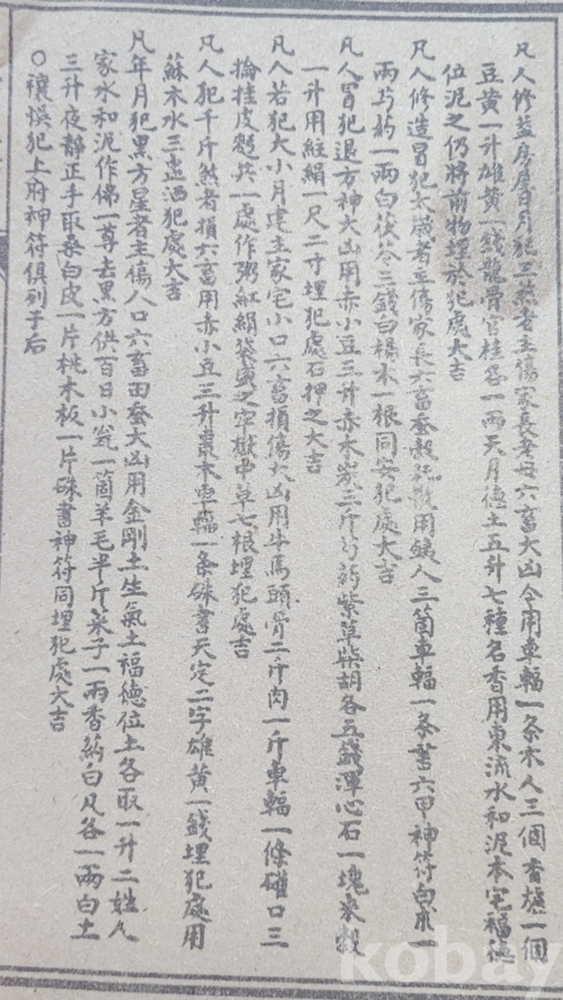 凡人修蓋房屋日月犯三煞者主傷家長老母六畜大凶令用車輻一条木人三個香爐一個
豆黄一升雄黄一錢龍骨官桂各一兩天月德土五升七種名香用東流水和泥本宅福德
位泥之仍將前物埋於犯處大吉
凡人修造冒犯太歲者主傷家長六畜蚕穀用鉄人三箇車輻一条書六甲神符白米一
兩芍药一兩白茯苓三錢白楊木一根同安犯處大吉
凡人冒犯退方神大凶用赤小豆三升赤木炭三斤芍药紫草柴胡各五錢渾心石一塊來穀
一升用紅絹一尺二寸埋犯處石押之大吉
凡人若犯大小月建主家宅小口六畜損傷大凶用牛馬頭骨二斤肉一斤車輻一條磂口三
掄桂皮麪共一處作粥紅絹袋盛之牢獄中草七根埋犯處吉
凡人犯千斤煞者損六畜用赤小豆三升棗木車輻一条硃書天定二字雄黄一錢埋犯處用
蘇木水三盞洒犯處大吉
凡年月犯黑方星者主傷人口六畜田蚕大凶用金剛土生氣土福德位土各取一升二姓人
家水和泥作佛一尊去黑方供百日小瓮一箇羊毛半斤麥子一兩香药白凡各一兩白土
三升夜靜正手取桑白皮一片桃木板一片硃書神符同埋犯處大吉
○禳悞犯上府神符俱列于后
kobay